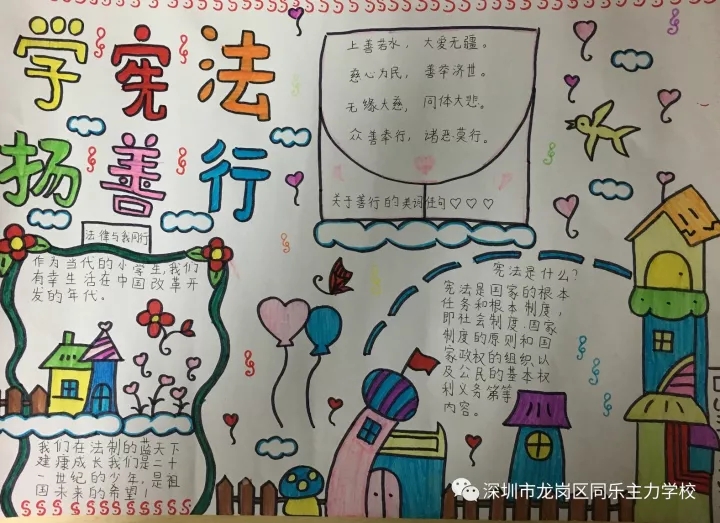 学宪法
扬善行
上善若水，大爱无疆。
慈心为民，善举济世。
无缘大慈，同体大悲。
众善奉行，诸恶莫行。
关于善行的美词佳句♡♡♡
法律与我同行
作为当代的小学生,我们
有幸生活在中国改革开
发的年代。
我们在法制的蓝天下
建康成长我们是二十
一世纪的少年，是祖
国未来的希望！
宪法是什么？
宪法是国家的根本
任务和根本制度，
即社会制度.国家
制度的原则和国
家政权的组织以
及公民的基本权
利义务等等
内容。
深圳市龙岗区同乐主力学校